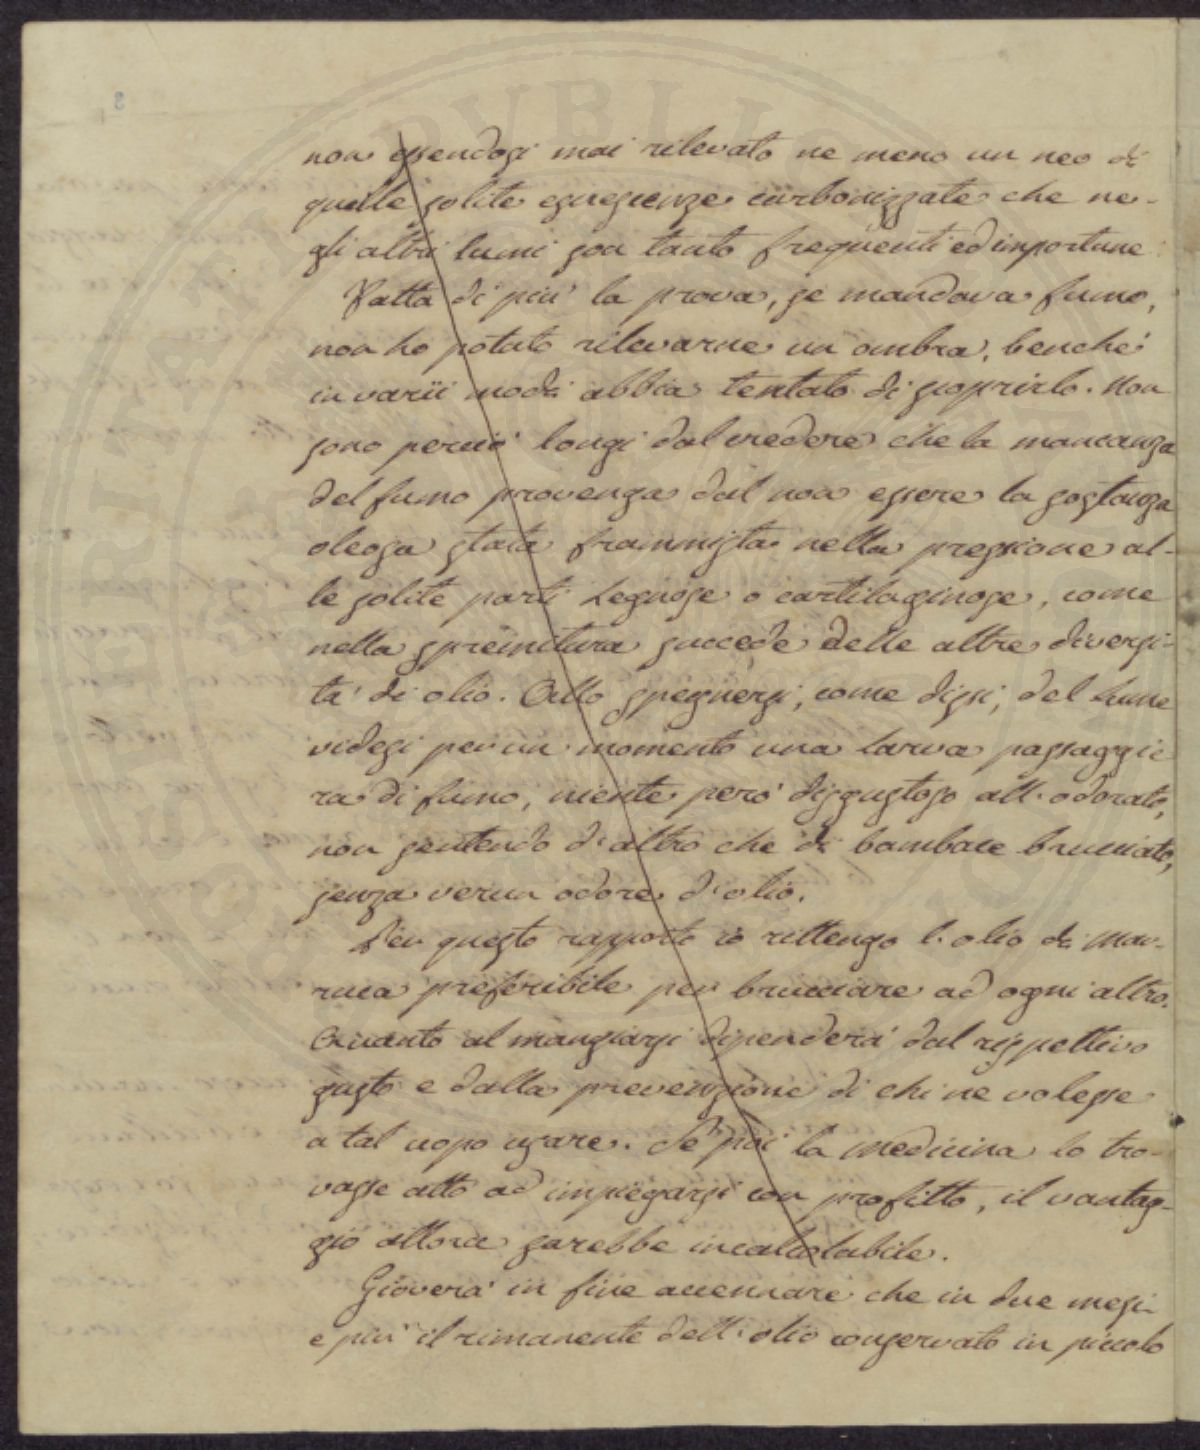 non essendosi mai rilevato ne meno un neo di
quelle solite escrescenze carbonizzate che ne-
gli altri lumi son tanto frequenti ed importune
Fatta di più la prova, se mandava fumo,
non ho potuto rilevarne un ombra, benchè
in varii modi abbia tentato di scoprirlo. Non
sono perciò longi dal credere che la mancanza
del fumo provenga dal non essere la sostanza
oleosa stata frammista nella pressione al-
le solite parti legnose o cartilaginose, come
nella spremitura succede delle altre diversi-
tà di olio. Allo spegnersi, come dissi, del Lume
videsi per un momento una larva passaggie
ra di fumo, niente però disgustoso all'odorato,
non sentendo d'altro che di bambace brucciato,
senza verun odore d'olio.
Per questo rapporto io rittengo l'olio di mar-
ruca preferibile per brucciare ad ogni altro.
Quanto al mangiarsi dipenderà dal rispettivo
gusto e dalla prevenzione di chi ne volesse
a tal uopo usare. Se poi la medicina lo tro-
vasse atto ad impiegarsi con profitto, il vantag-
gio allora sarebbe incalcolabile.
Gioverà in fine accennare che in due mesi
e più il rimanente dell'olio conservato in piccolo